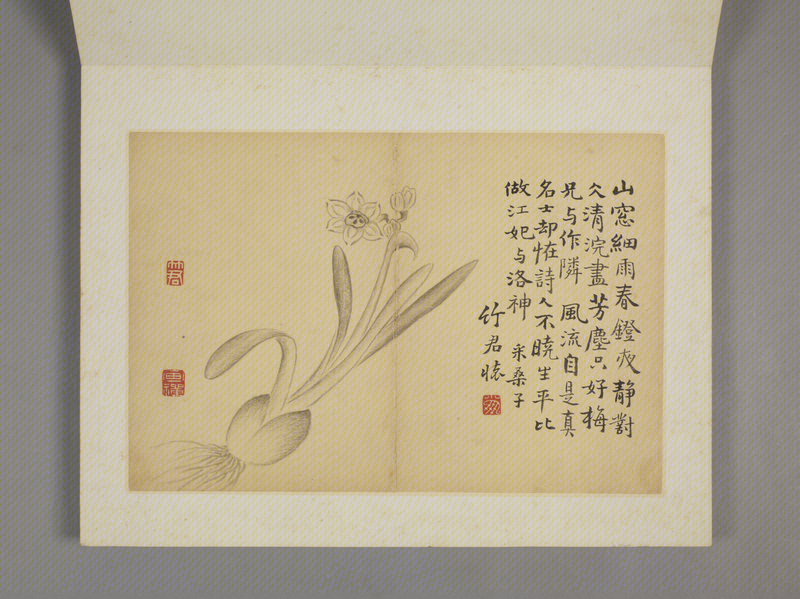 山窓細雨春鐙夜静對
仌清浣盡芳塵只好梅
兄与作隣 風流自是真
名士却恠詩人不曉生平比
做江妃与洛神 采桑子
竹君